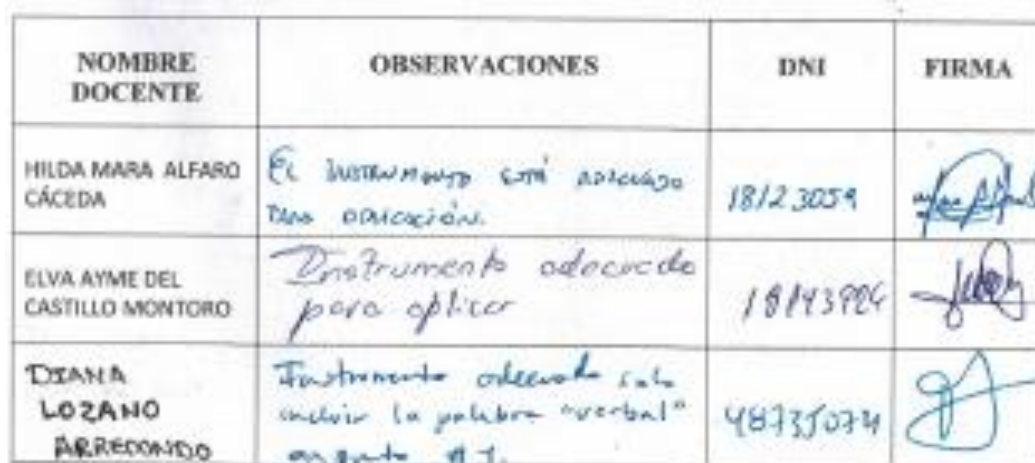 NOMBRE
DOCENTE
OBSERVACIONES
DNI
FIRMA
HILDA MARA ALFARO
CÁCEDA
El instrumento está adecuado
aplicación.
18123059
ELVA AYME DEL
CASTILLO MONTORO
Instrumento adecuado
para aplicar
DIANA
LOZANO
ARREDONDO
Instrumento adecuado solo
incluir la palabra "verbal"